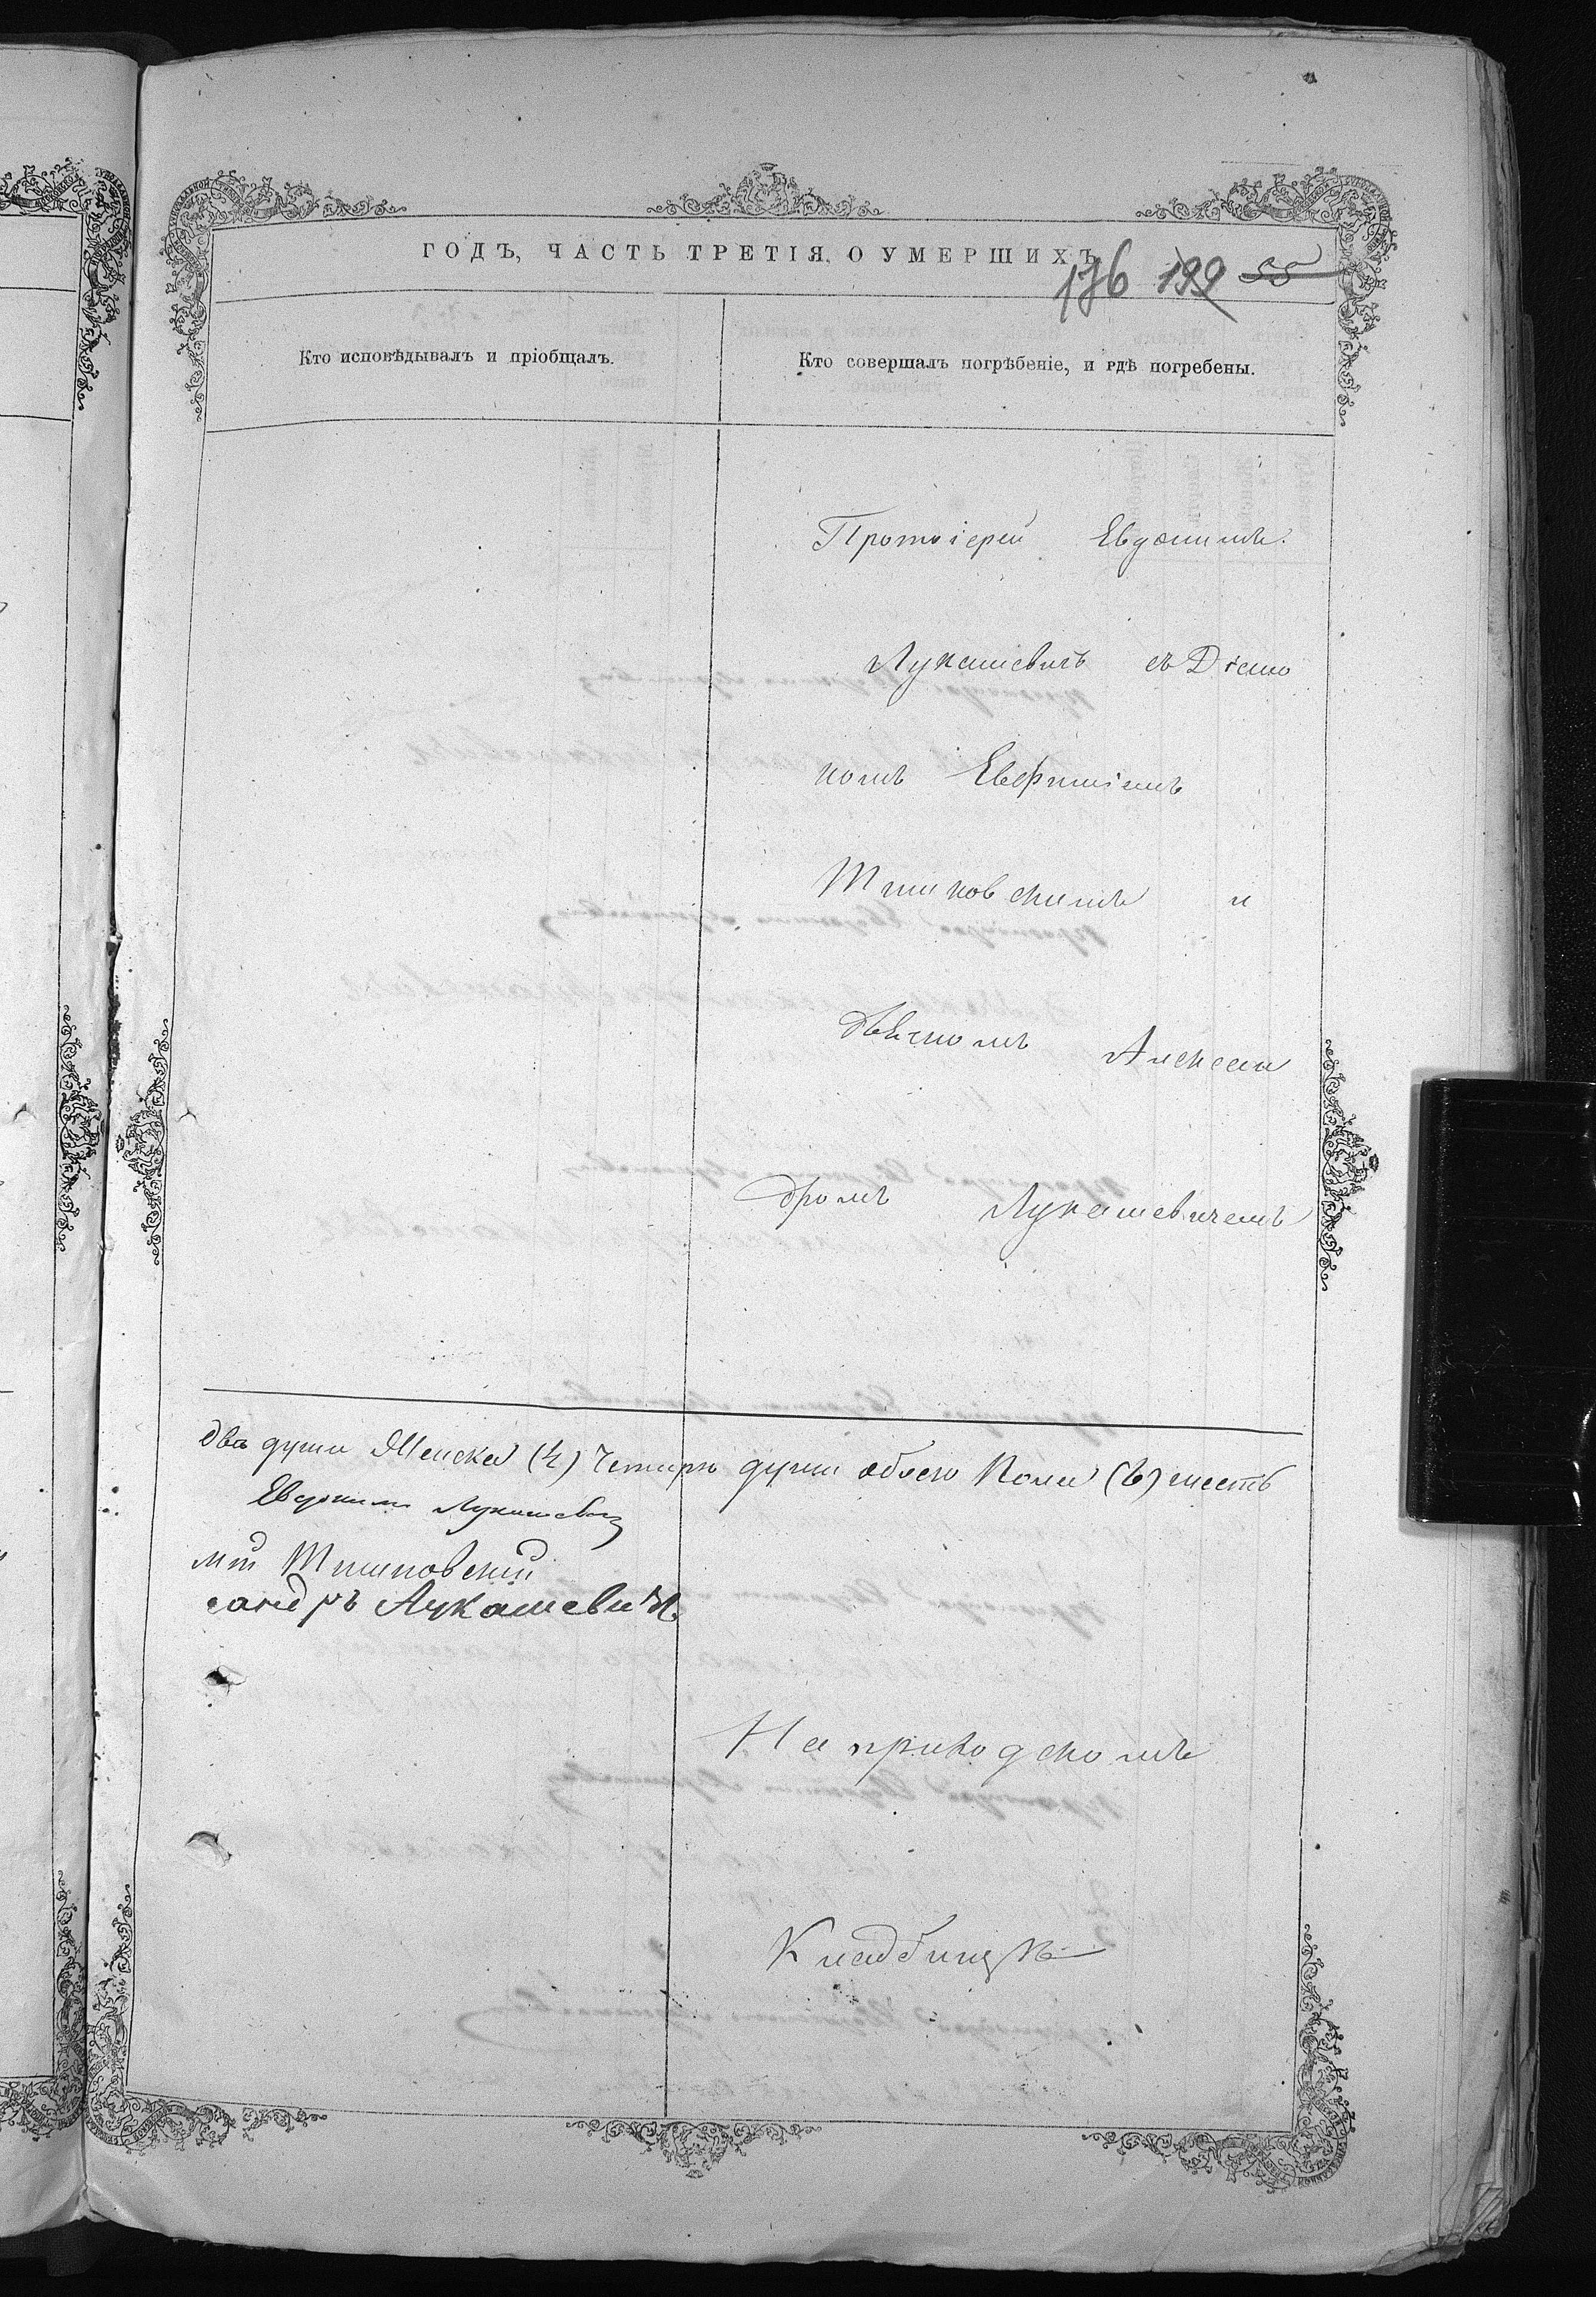 ГОДЪ, ЧАСТЬ ТРЕТІЯ, О УМЕРШИХЪ
176 199 55
Кто исповѣдывалъ и пріобщалъ.
Кто совершалъ погрѣбеніе, и гдѣ погребены.
Протоіерей Евдокимъ
Лукашевичъ съ Діако
номъ Евфиміемъ
Тишковскимъ и
дьячкомъ Алексан
дромъ Лукашевичемъ
два души Женска (4) Четыре души обоего Пола (6) шесть
Евдокимъ Лукашевичъ
мій Тишковскій
сандръ Лукашевичъ
На приходскомъ
Кладбищѣ